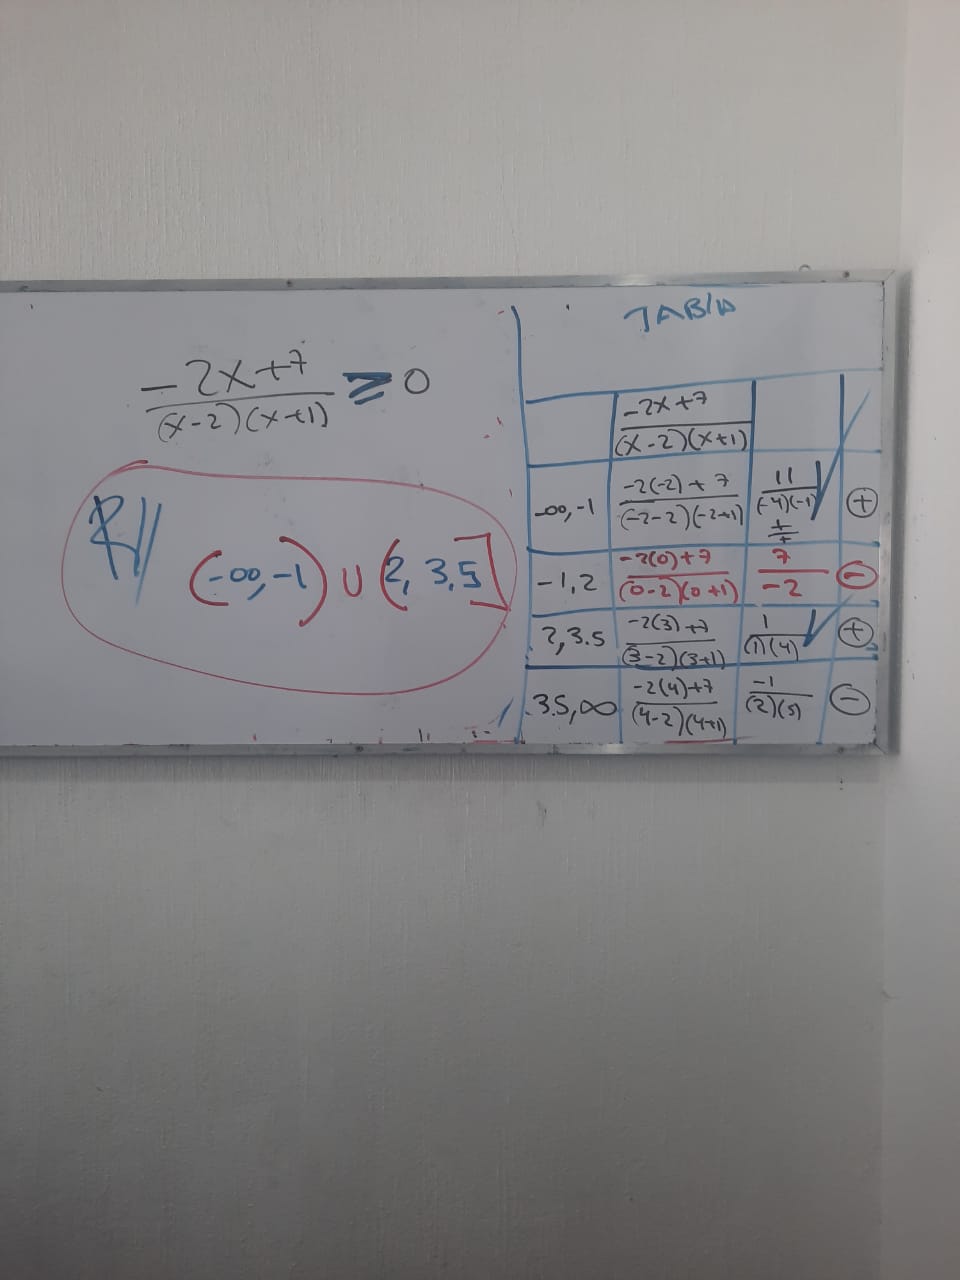 -2x+7
(x-2)(x+1)
≥ 0
R//
(-∞,-1) ∪ (2, 3.5]
TABlA
-2x+7
(x-2)(x+1)
-∞,-1
-2(-2)+7
(-2-2)(-2+1)
11
(-4)(-1)
+
+
+
-1,2
-2(0)+7
(0-2)(0+1)
7
-2
-
2,3.5
-2(3)+7
(3-2)(3+1)
1
(1)(4)
+
3.5,∞
-2(4)+7
(4-2)(4+1)
-1
(2)(5)
-